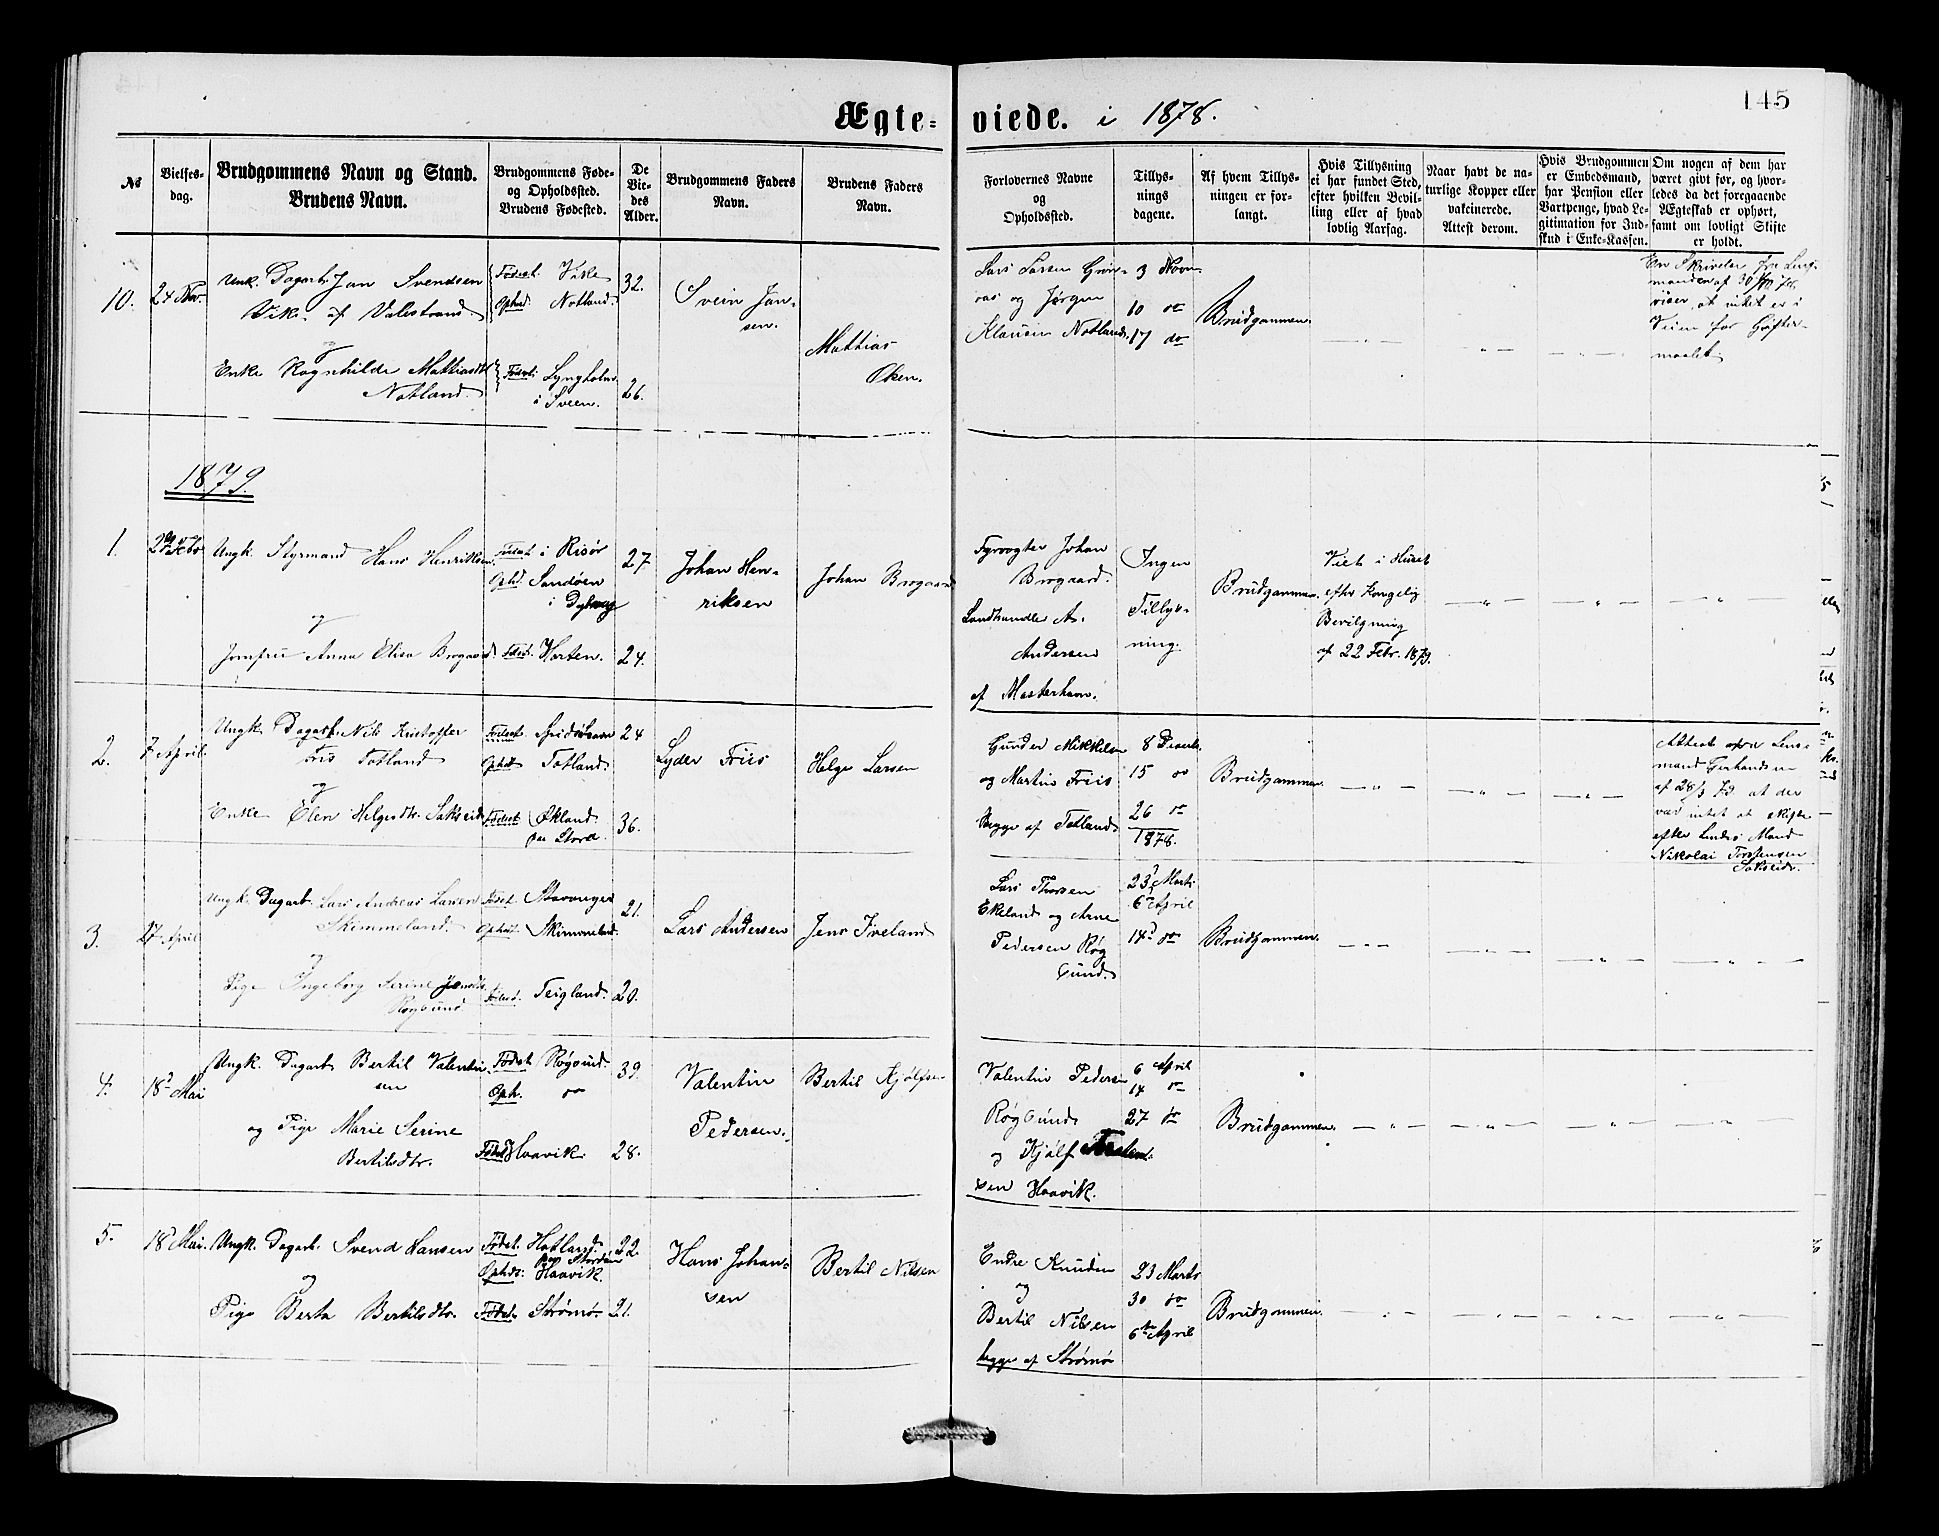 145
Ægteviede. i 1878.
No
Vielsesdag.
Brudgommens Navn og Stand.
Brudens Navn.
Brudgommens Føde-
og Opholdssted.
Brudens Fødested.
De
Vie-
des
Alder.
Brudgommens Faders
Navn.
Brudens Faders
Navn.
Forlovernes Navne
og
Opholdssted.
Tillys-
nings
dagene.
Af hvem Tillys-
ningen er for-
langt.
Hvis Tillysning
ei har fundet Sted,
efter hvilken Bevil-
ling eller af hvad
lovlig Aarsag.
Naar havt de na-
turlige Kopper eller
vakcinerede.
Attest derom.
Hvis Brudgommen
er Embedsmand,
har Pension eller
Vartpenge, hvad Le-
gitimation for Ind-
skud i Enke-Kassen.
Om nogen af dem har
været givt før, og hvor-
ledes da det foregaaende
Ægteskab er ophørt,
samt om lovligt Skifte
er holdt.
10.
24 Nov.
Unk. Dagarb. Jan Svendsen
Vik af Valestrand
og
Enke Ragnhilde Mathiasdtr
Notland.
Fødest. Vike
Ophd. Notland
Fødest. Lyngholm
i Sveen.
32.
26.
Svein Jan-
sen.
Mathias
Øken.
Lars Larsen
og Jørgen
Klausen Notland.
3 Novm.
10 do
17 do
Brudgommen.
En Skrivelse fra Lens-
manden af 30
viser, at intet er i
Veien for Gifter-
maalet
1879.
1.
Febr
Ungk. Styrmand Hans Henriksen.
og
Jomfru Anna Elisa Brogaard
Fødest. i Risør
Ophd. Sandøen
i Dybvaag
Fødest. Horten.
27
24.
Johan Hen-
riksen
Johan Brogaard
Fyrvogter Johan
Brogaard.
Landhandler A.
Andersen
af Mosterhavn.
Ingen
Tillys-
ning.
Brudgommen.
Viet i Huset
efter Kongelig
Bevilgning
af 22 Febr. 1879.
2.
7 April.
Ungk. Dagarb. Nils Kristoffer
Friis Totland
og
Enke Elen Helgesdtr. Sakseid
Fødest.
Ophdst Totland.
Fødest. Økland
paa Stord.
24
36.
Lyder Friis
Helge Larsen
Gunder Mikkelsen
og Martin Friis
Begge af Totland
8 Decenb.
15 do
26 do
1878.
Brudgommen
Attest fra Lens-
mand Gerhardsen
af 28/3 79 at der
var intet at skifte
efter Mand
Nikolai Torstensen
Sakseid.
3.
27 April
Ungk. Dagarb. Lars Andreas Larsen
Skimmeland.
og
Pige Ingeborg Serine Jensdtr.
Røgsund
Fødest. Stavanger
Ophdst. Skimmeland.
Fødest. Teigland.
21.
20.
Lars Andersen
Jens Iveland
Lars Thorsen
Ekeland og Arne
Pedersen Røg
sund.
23 Marts
6 April
14 do
Brudgommen.
4.
18 Mai
Ungk. Dagarb Bertil Valentin
sen
og Pige Marie Serine
Bertilsdtr.
Fødest. Røgsund.
Oph. do
Fødest. Haavik.
39.
28.
Valentin
Pedersen.
Bertil Kjølfsen
Valentin Pedersen
Røgsund
og Kjølf Torsten-
sen Haavik.
6 April
14 do
27 do
Brudgommen.
5.
18 Mai.
Ungk. Dagarb. Svend Hansen
og
Pige Berta Bertilsdtr.
Fødest. Hatland
paa Storden
Ophds: Haavik.
Fødest. Strømø
22.
21.
Hans Johan-
sen
Bertil Nilsen
Endre Knudsen
og
Bertil Nilsen
begge af Strømø
23 Marts
30 do
6te April
Brudgommen.